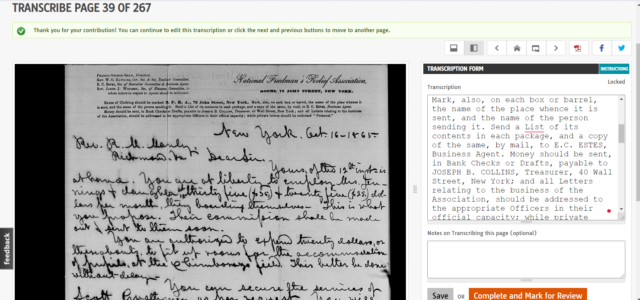 TRANSCRIBE PAGE 39 OF 267
Thank you for your contribution! You can continue to edit this transcription or click the next and previous buttons to move to another page.
TRANSCRIPTION FORM
INSTRUCTIONS
Transcription
Locked
Mark, also, on each box or barrel,
the name of the place whence it is
sent, and the name of the person
sending it. Send a List of its
contents in each package, and a copy
of the same, by mail, to E.C. ESTES,
Business Agent. Money should be sent,
in Bank Checks or Drafts, payable to
JOSEPH B. COLLINS, Treasurer, 40 Wall
Street, New York; and all Letters
relating to the business of the
Association, should be addressed to
the appropriate Officers in their
official capacity; while private
Notes on Transcribing this page (optional)
Save OR Complete and Mark for Review
feedback
National Freedman's Relief Association,
ROOMS, 76 JOHN STREET, NEW YORK.
New York. Oct 16 - 1865
Rev. R. M. Manly
Richmond Va Dear Sir
Yours of the 12th inst is
at hand. You are at liberty to employ Mrs Jen
nings & daughter at thirty five ($35) & twenty five ($25) dol-
lars per month, they boarding themselves. This is what
you propose. Their commission shall be made
out & sent to them soon.
You are authorized to expend twenty dollars, or
thereabouts, to fit up rooms for the accommodation
of pupils, at the Chimborazo field. This better be done
without delay.
You can secure the services of